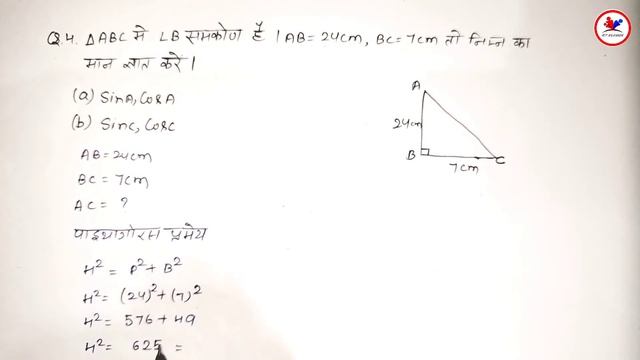 Q.4. △ABC मे ∠B समकोण है । AB = 24cm, BC = 7cm तो निम्न का
मान ज्ञात करे ।
(a) SinA, CosA
(b) SinC, CosC
AB = 24cm
BC = 7cm
AC = ?
पाइथागोरस प्रमेय
H² = P² + B²
H² = (24)² + (7)²
H² = 576 + 49
H² = 625 =
A
24cm
B
C
7cm